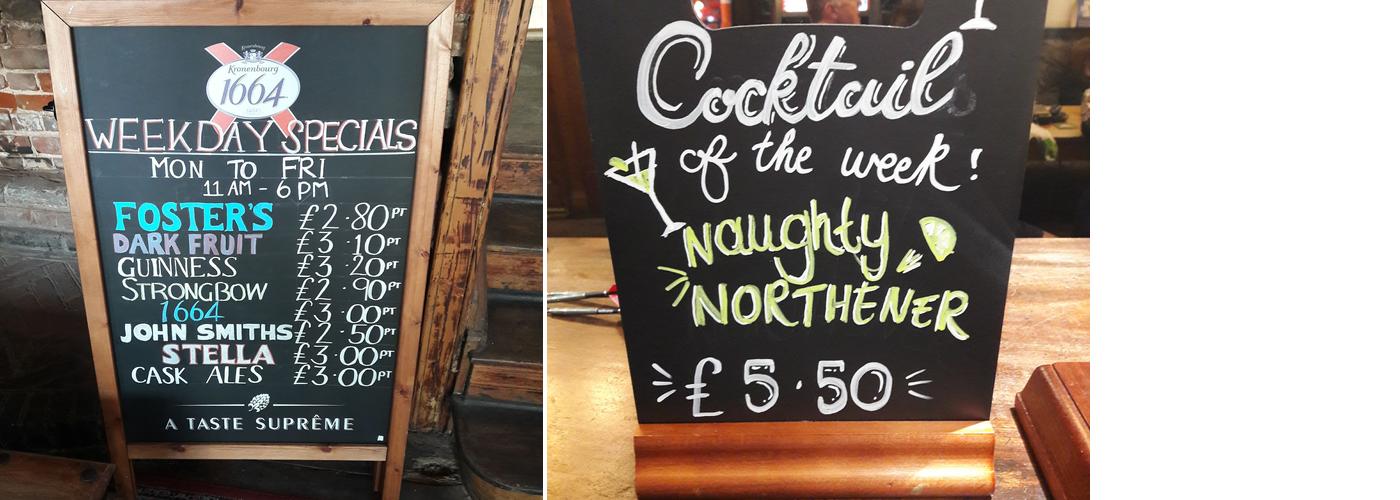 Kronenbourg
Kronenbourg
1664
WEEKDAY SPECIALS
MON TO FRI
11 AM - 6 PM
FOSTER'S £2.80PT
DARK FRUIT £3.10PT
GUINNESS £3.20PT
STRONGBOW £2.90PT
1664 £3.00PT
JOHN SMITHS £2.50PT
STELLA £3.00PT
CASK ALES £3.00PT
A TASTE SUPRÊME
Cocktail
of the week!
Naughty
NORTHENER
£5.50